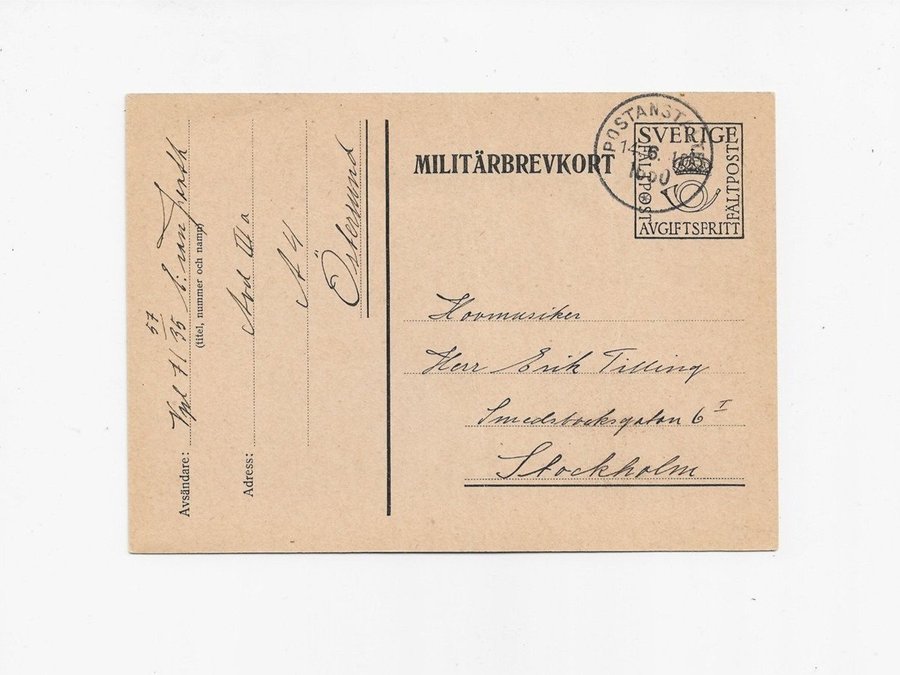 MILITÄRBREVKORT
POSTANST
14.6.
SVERIGE
FÄLTPOST
FÄLTPOST
AVGIFTSFRITT
Hovmusiker
Herr Erik Tilling
6 I
Stockholm
Avsändare: Vpl 71 57/35
(titel, nummer och namn)
Adress: Avd III a
A 4
Östersund